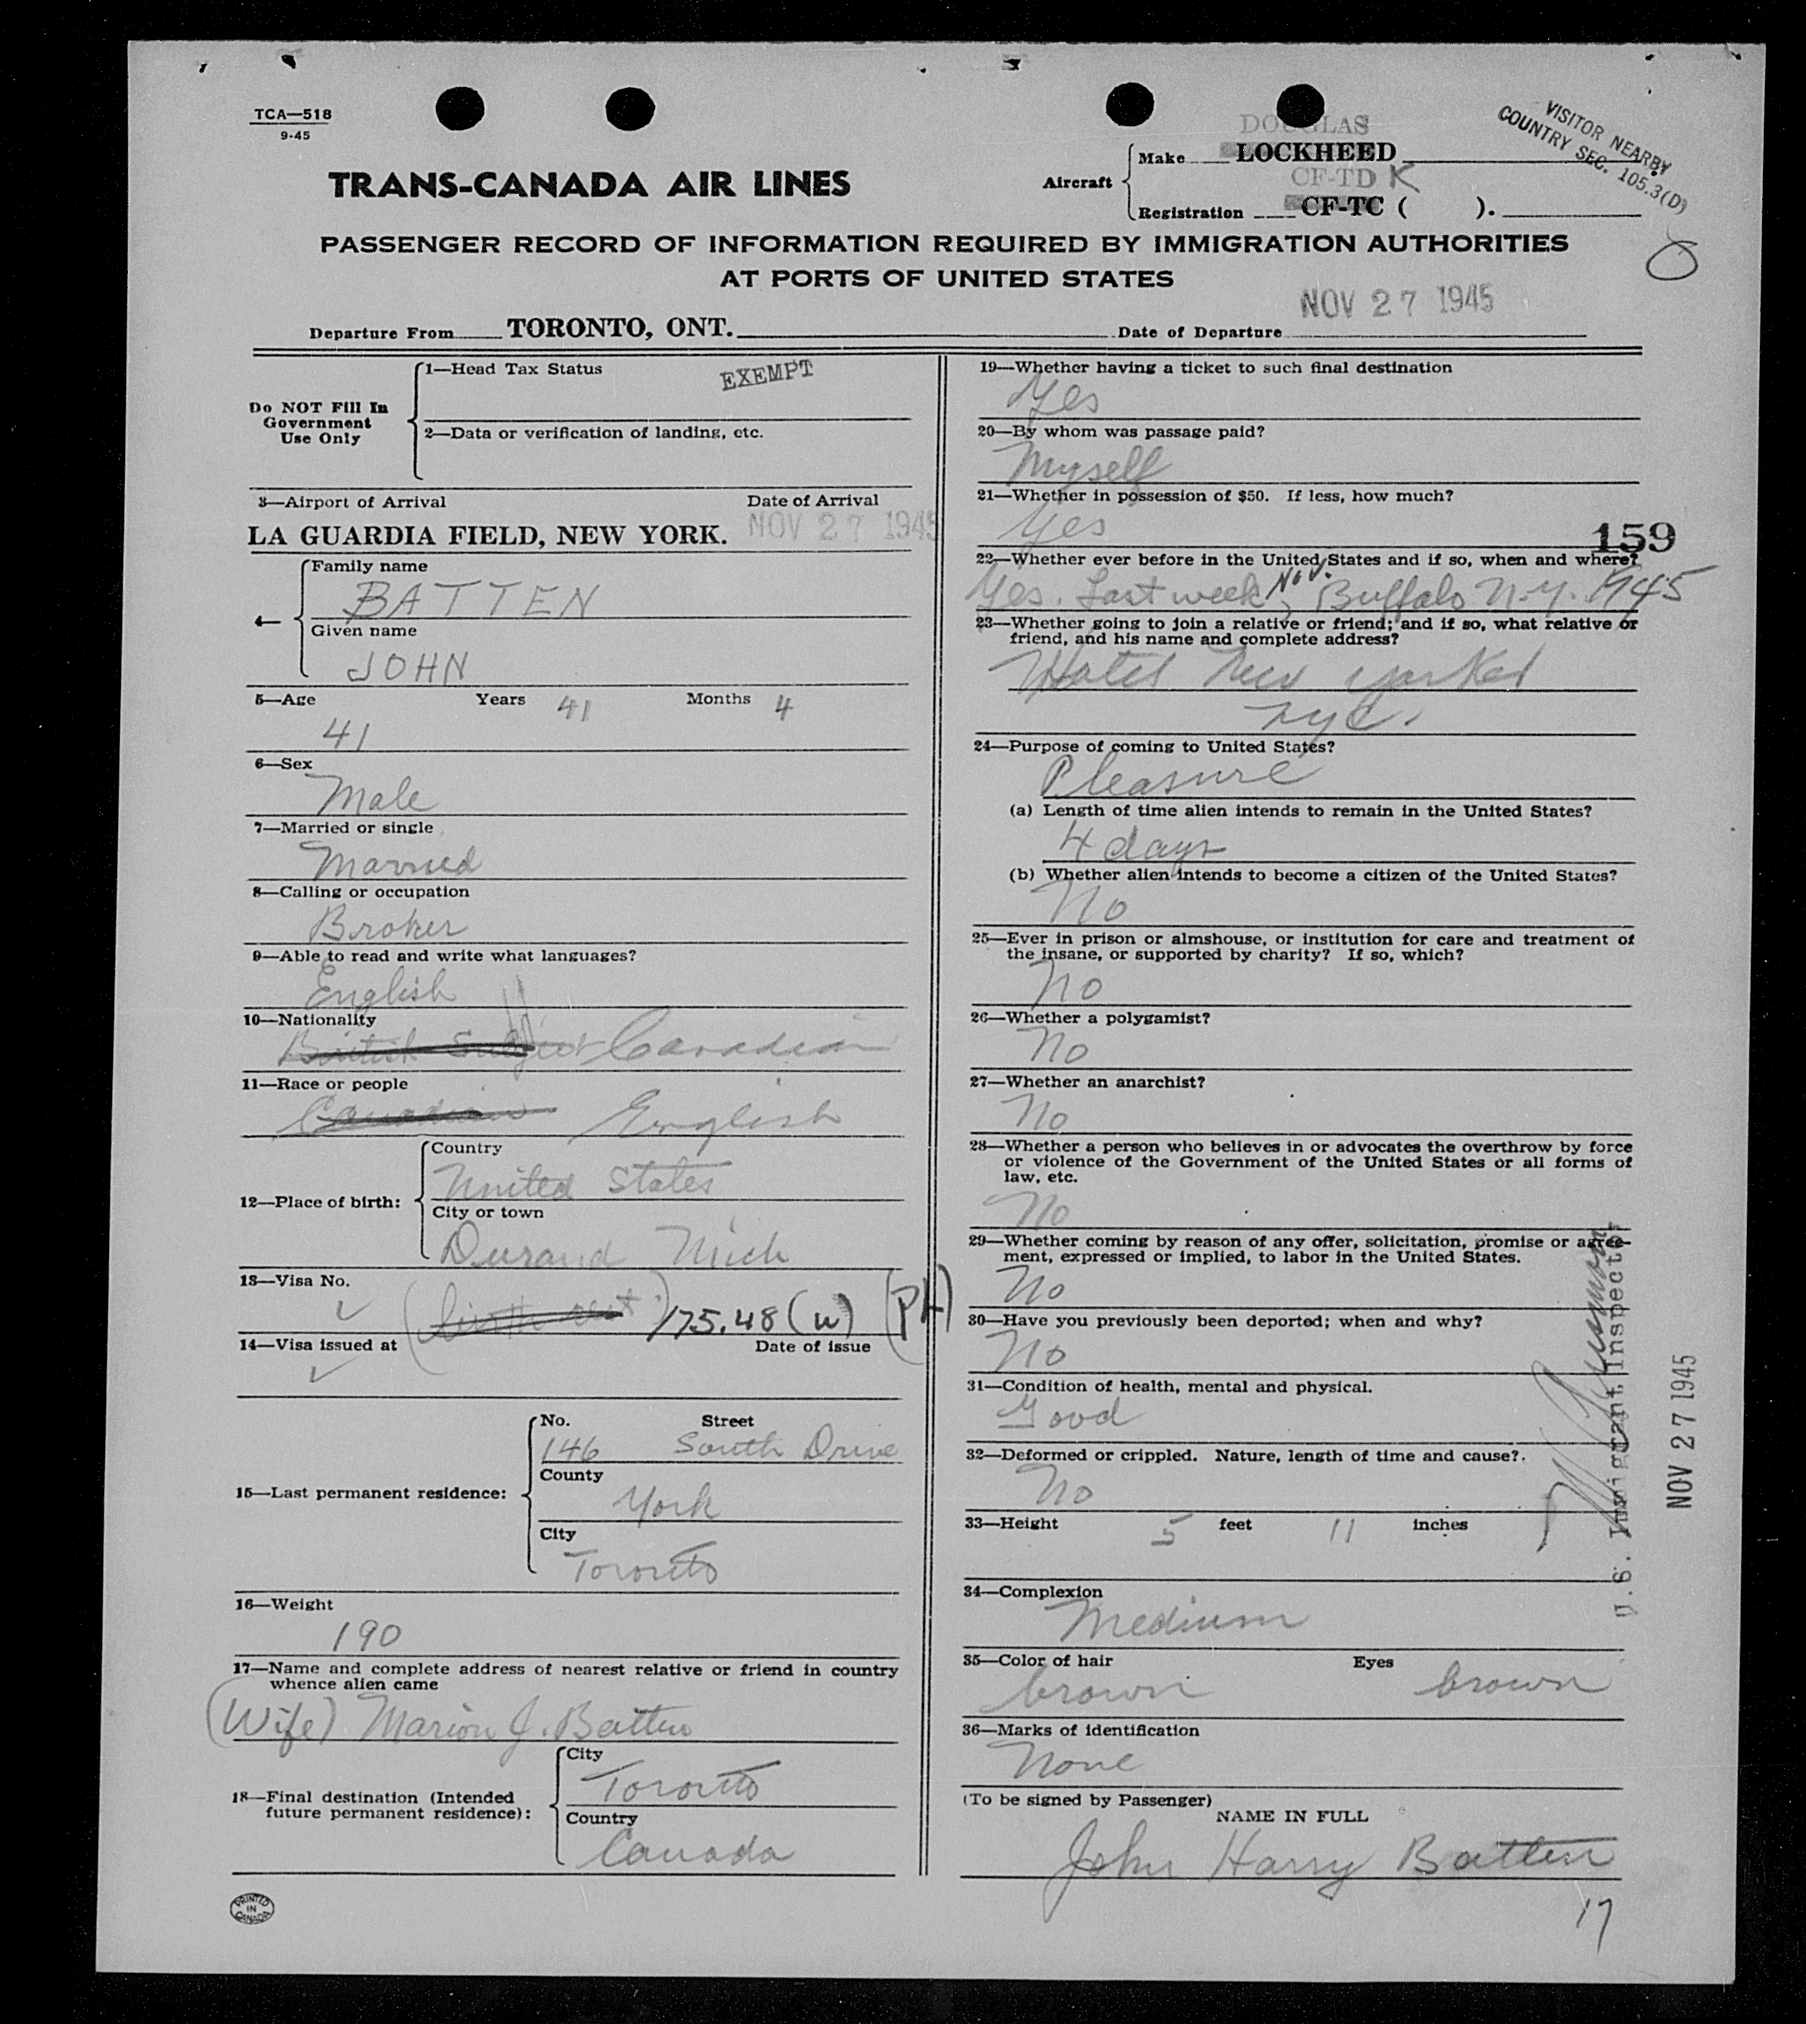 TCA—518
9-45
TRANS-CANADA AIR LINES
Aircraft
DOUGLAS
Make LOCKHEED
CF-TD K
Registration CF-TC ( ).
VISITOR NEARBY
COUNTRY SEC. 105.3(D)
PASSENGER RECORD OF INFORMATION REQUIRED BY IMMIGRATION AUTHORITIES
AT PORTS OF UNITED STATES
NOV 27 1945
Departure From TORONTO, ONT. Date of Departure
Do NOT Fill In
Government
Use Only
1—Head Tax Status EXEMPT
2—Data or verification of landing, etc.
3—Airport of Arrival Date of Arrival
LA GUARDIA FIELD, NEW YORK. NOV 27 1945
4—
Family name
BATTEN
Given name
JOHN
5—Age Years 41 Months 4
41
6—Sex
Male
7—Married or single
Married
8—Calling or occupation
Broker
9—Able to read and write what languages?
English
10—Nationality
British Subject Canadian
11—Race or people
Canadian English
12—Place of birth:
Country
United States
City or town
Durand Mich
13—Visa No.
(birth cert.) 175.48 (w) (PH)
14—Visa issued at Date of issue
15—Last permanent residence:
No. Street
146 South Drive
County
York
City
Toronto
16—Weight
190
17—Name and complete address of nearest relative or friend in country
whence alien came
(Wife) Marion J. Batten
18—Final destination (Intended
future permanent residence):
City
Toronto
Country
Canada
PRINTED
IN
CANADA
19—Whether having a ticket to such final destination
Yes
20—By whom was passage paid?
Myself
21—Whether in possession of $50. If less, how much?
Yes
159
22—Whether ever before in the United States and if so, when and where?
Yes. Last week Nov. Buffalo N.Y. 1945
23—Whether going to join a relative or friend; and if so, what relative or
friend, and his name and complete address?
Hotel New Yorker
NYC.
24—Purpose of coming to United States?
Pleasure
(a) Length of time alien intends to remain in the United States?
4 days
(b) Whether alien intends to become a citizen of the United States?
No
25—Ever in prison or almshouse, or institution for care and treatment of
the insane, or supported by charity? If so, which?
No
26—Whether a polygamist?
No
27—Whether an anarchist?
No
28—Whether a person who believes in or advocates the overthrow by force
or violence of the Government of the United States or all forms of
law, etc.
No
29—Whether coming by reason of any offer, solicitation, promise or agree-
ment, expressed or implied, to labor in the United States.
No
30—Have you previously been deported; when and why?
No
31—Condition of health, mental and physical.
Good
32—Deformed or crippled. Nature, length of time and cause?
No
33—Height 5 feet 11 inches
34—Complexion
Medium
35—Color of hair Eyes
brown brown
36—Marks of identification
None
(To be signed by Passenger)
NAME IN FULL
John Harry Batten
17
U.S. Immigrant Inspector
NOV 27 1945